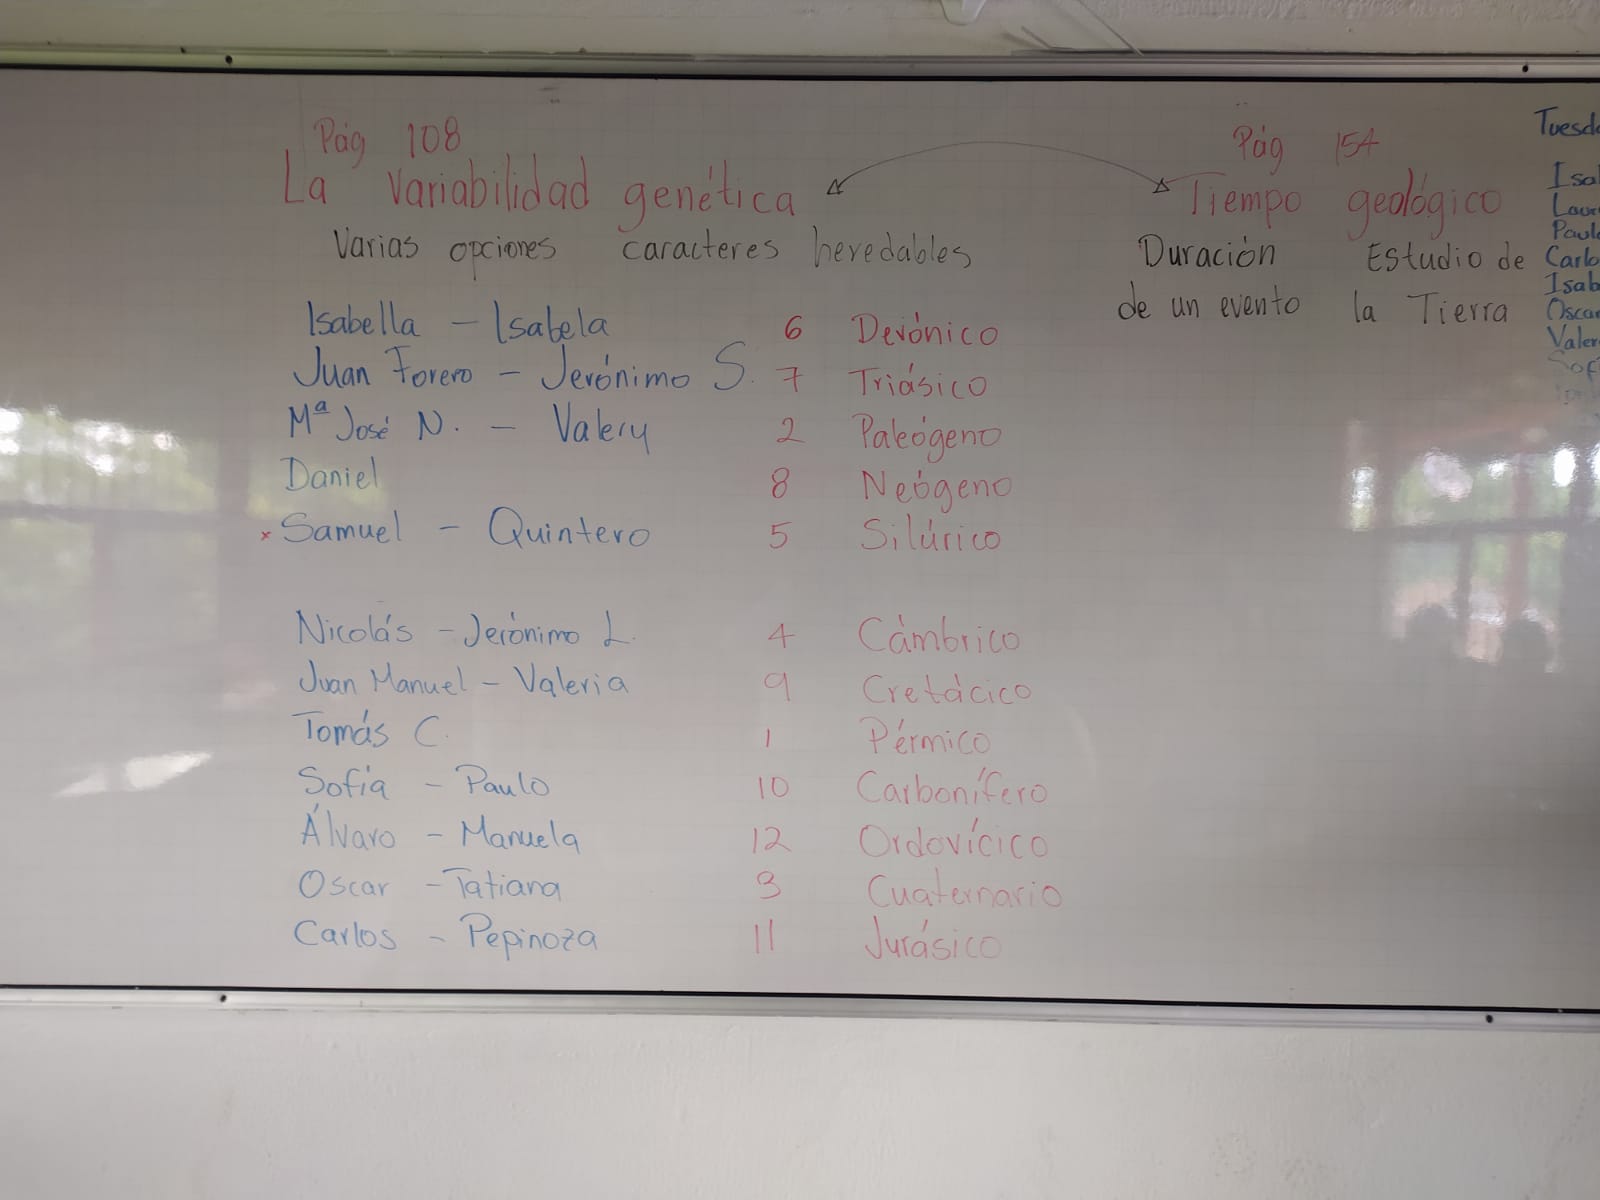 Pág 108
La Variabilidad genética
Varias opciones caracteres heredables
Pág 154
Tiempo geológico
Duración Estudio de
de un evento la Tierra
Isabella - Isabela 6 Devónico
Juan Forero - Jerónimo S. 7 Triásico
Mª José N. - Valery 2 Paleógeno
Daniel 8 Neógeno
x Samuel - Quintero 5 Silúrico
Nicolás - Jerónimo L. 4 Cámbrico
Juan Manuel - Valeria 9 Cretácico
Tomás C. 1 Pérmico
Sofía - Paulo 10 Carbonífero
Álvaro - Manuela 12 Ordovícico
Oscar - Tatiana 3 Cuaternario
Carlos - Pepinoza 11 Jurásico
Tuesd
Isa
Lau
Paul
Carlo
Isab
Oscar
Valer
Sof